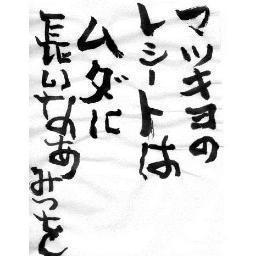 マツキヨの
レシートは
ムダに
長いなあ
みつを